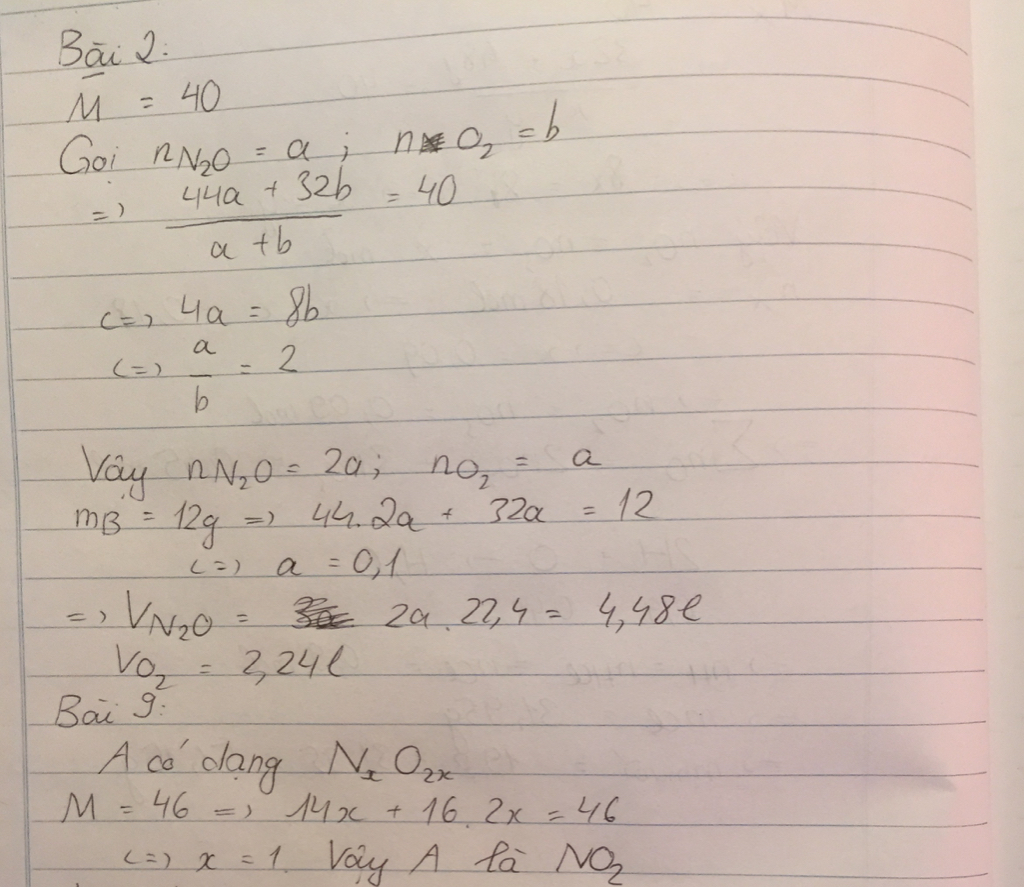 Bài 2:
M = 40
Gọi nN₂O = a ; n O₂ = b
=> (44a + 32b)/(a + b) = 40
<=> 4a = 8b
<=> a/b = 2
Vậy nN₂O = 2a ; nO₂ = a
mB = 12g => 44.2a + 32a = 12
<=> a = 0,1
=> VN₂O = 2a . 22,4 = 4,48l
VO₂ = 2,24l
Bài 9:
A có dạng NₓO₂ₓ
M = 46 => 14x + 16.2x = 46
<=> x = 1. Vậy A là NO₂